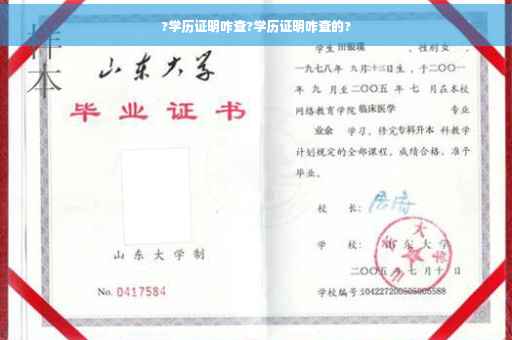 ?学历证明咋查?学历证明咋查的?
样本
山东大学
毕业证书
山东大学制
No. 0417584
学生 田银瑞 ,性别 女 ,
一九七八年 九月十二日生,于二〇〇一
年 九 月至二〇〇五 年 七 月在本校
网络教育学院 临床医学 专业
业余 学习,修完 专科升本 科教学
计划规定的全部课程,成绩合格,准予
毕业。
校 长:
学 校: 山东大学
二〇〇五 年 七 月 十 日
学校编号:104227200505005588